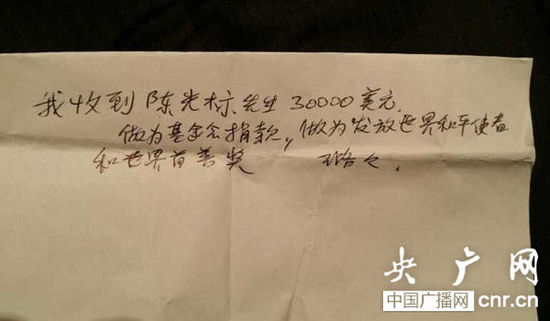 我收到陈光标先生30000美元.
做为基金会捐款,做为发放世界和平使者
和世界首善奖 璐々.
央广网
中国广播网 cnr.cn